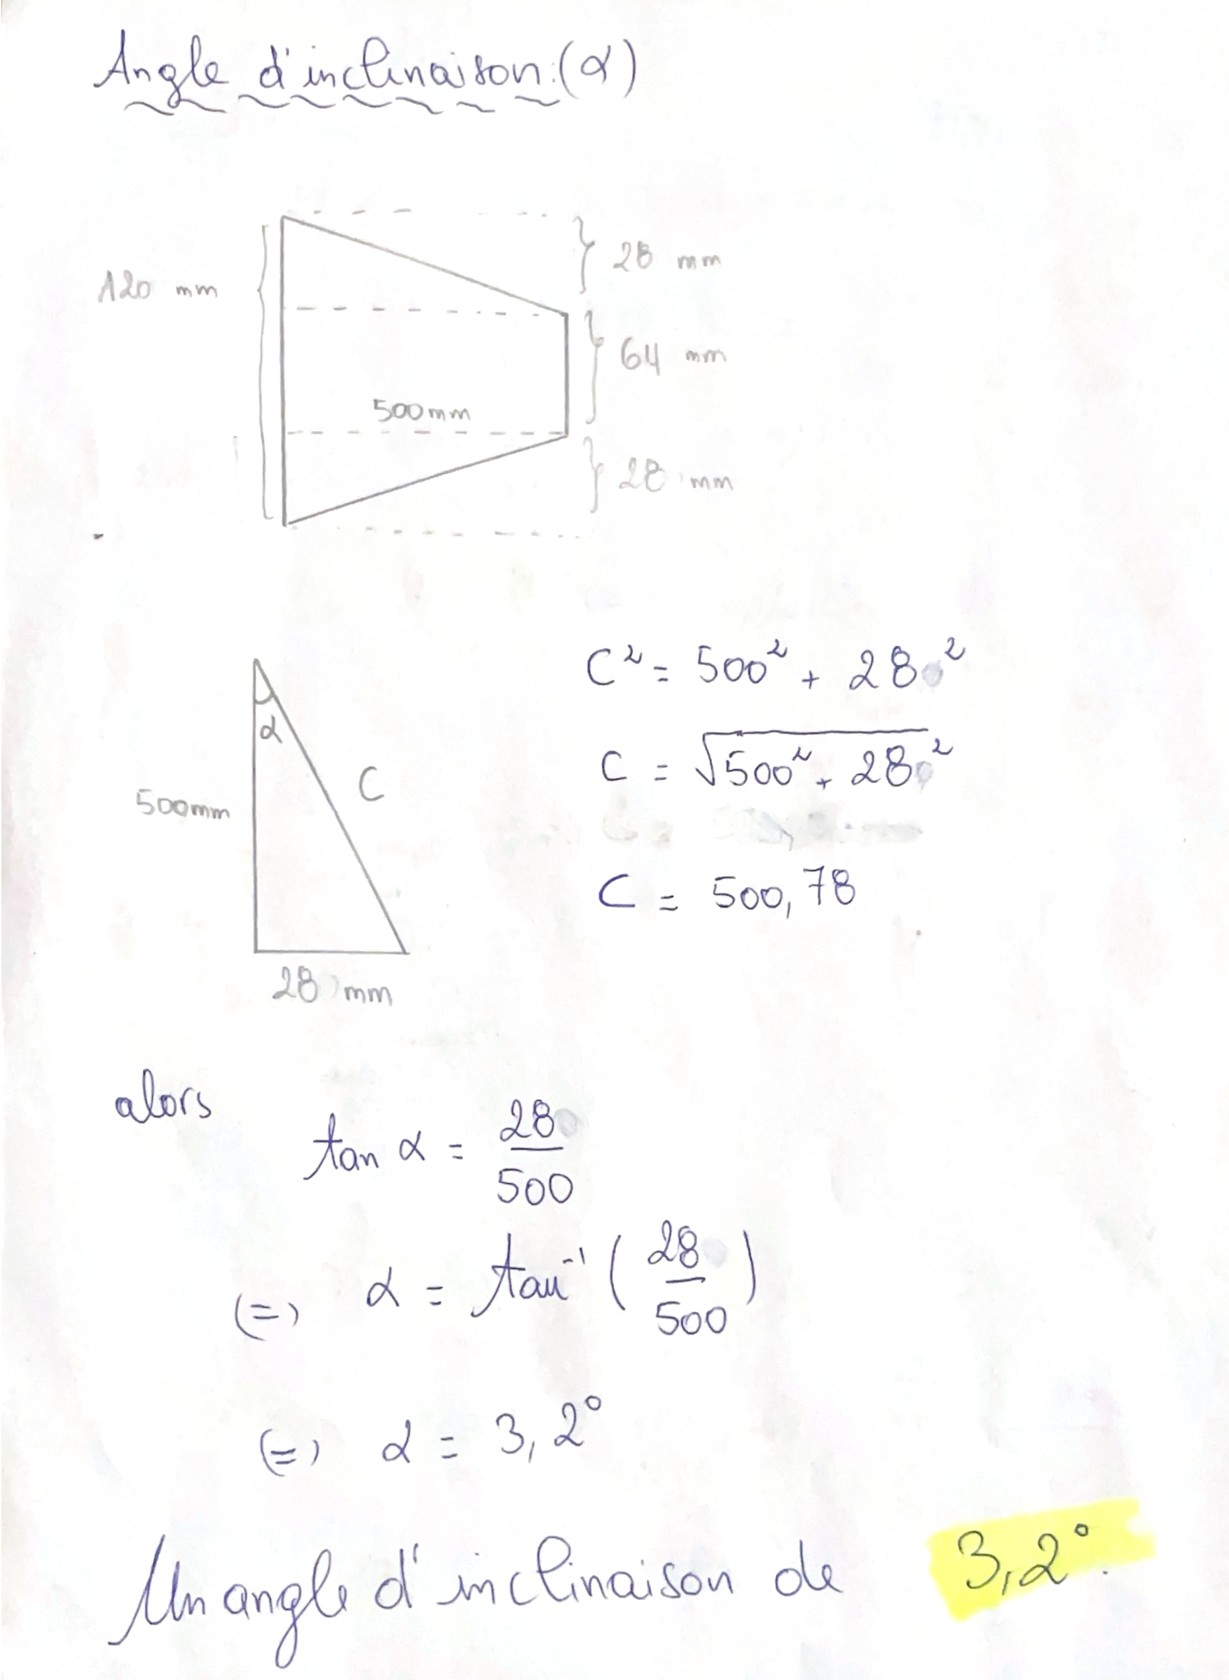 Angle d'inclinaison:(α)
120 mm
28 mm
64 mm
500mm
28 mm
α
C
500mm
28 mm
C² = 500² + 28²
C = √500² + 28²
C = 500,78
alors
tan α = 28/500
(=) α = tan⁻¹ (28/500)
(=) α = 3,2°
Un angle d'inclinaison de 3,2°.